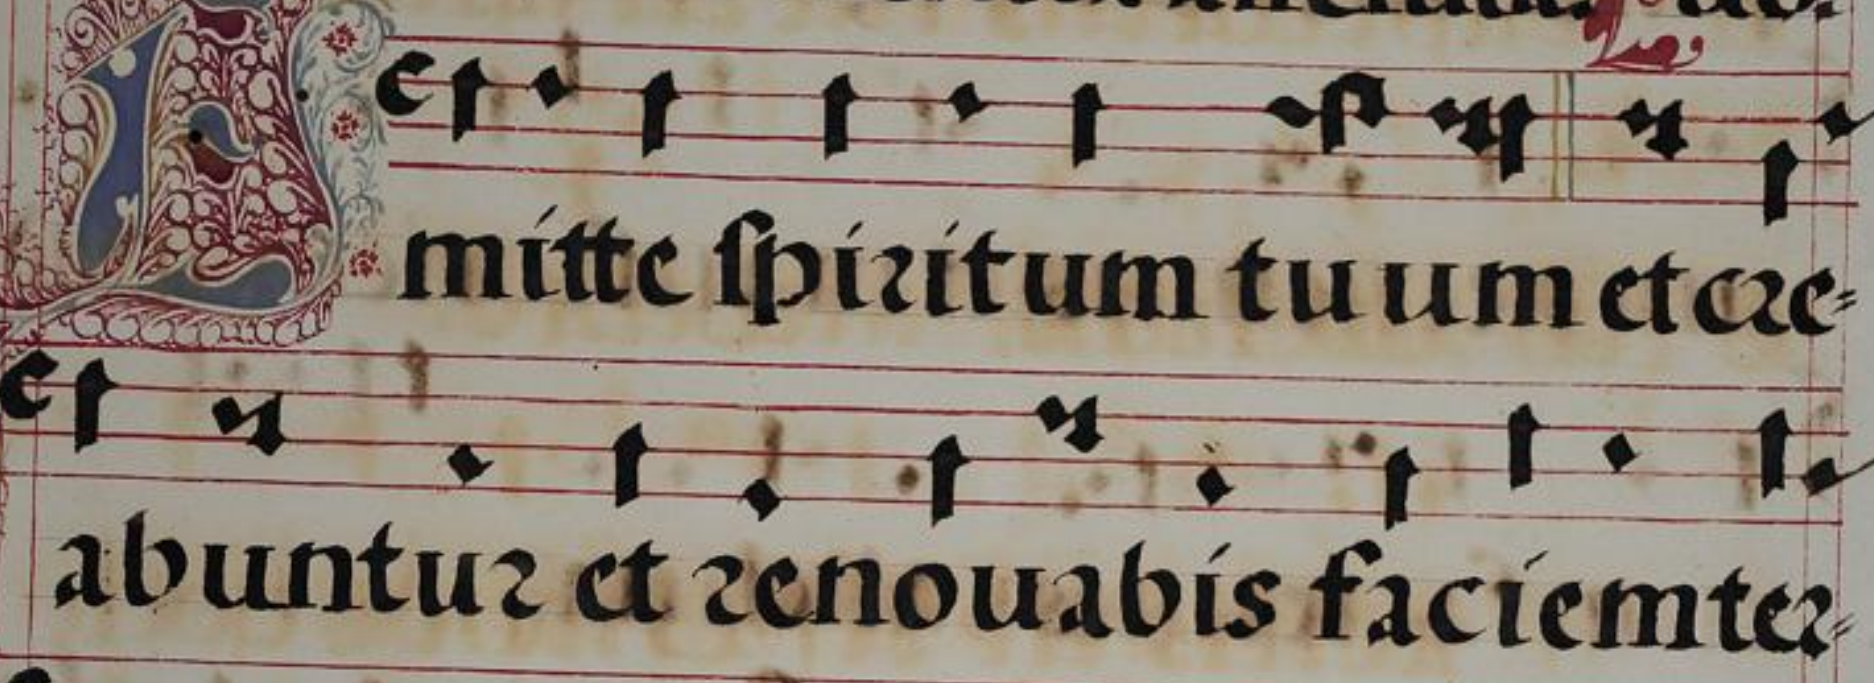 Emitte spiritum tuum et cre-
abuntur et renouabis faciem ter-